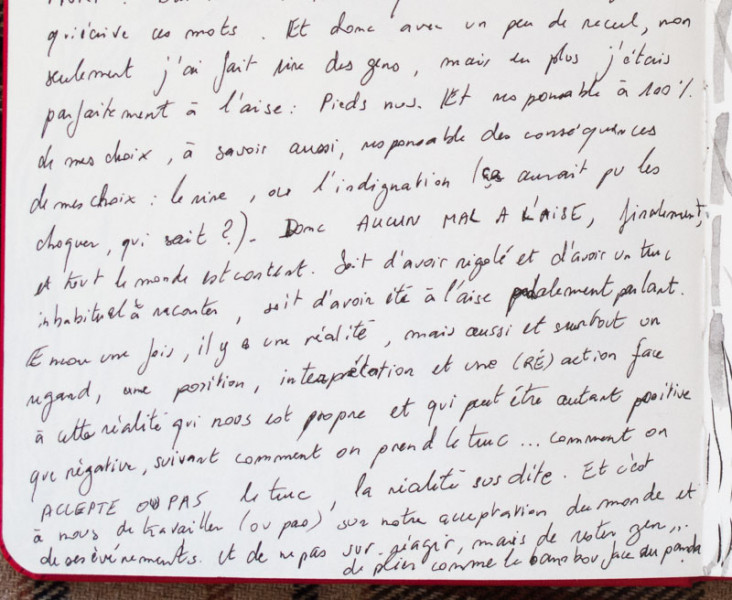 qui écrive ces mots. Et donc avec un peu de recul, non
seulement j'ai fait rire des gens, mais en plus j'étais
parfaitement à l'aise : Pieds nus. Et responsable à 100%
de mes choix, à savoir aussi, responsable des conséquences
de mes choix : le rire, ou l'indignation (ça aurait pu les
choquer, qui sait ?). Donc AUCUN MAL A L'AISE, finalement,
et tout le monde est content. Soit d'avoir rigolé et d'avoir un truc
inhabituel à raconter, soit d'avoir été à l'aise pédalement parlant.
Encore une fois, il y a une réalité, mais aussi et surtout un
regard, une position, interprétation et une (RÉ)action face
à cette réalité qui nous est propre et qui peut être autant positive
que négative, suivant comment on prend le truc... comment on
ACCEPTE OU PAS le truc, la réalité sus dite. Et c'est
à nous de travailler (ou pas) sur notre acceptation du monde et
de ses événements. Et de ne pas sur-réagir, mais de rester zen...
de plier comme le bambou face au panda